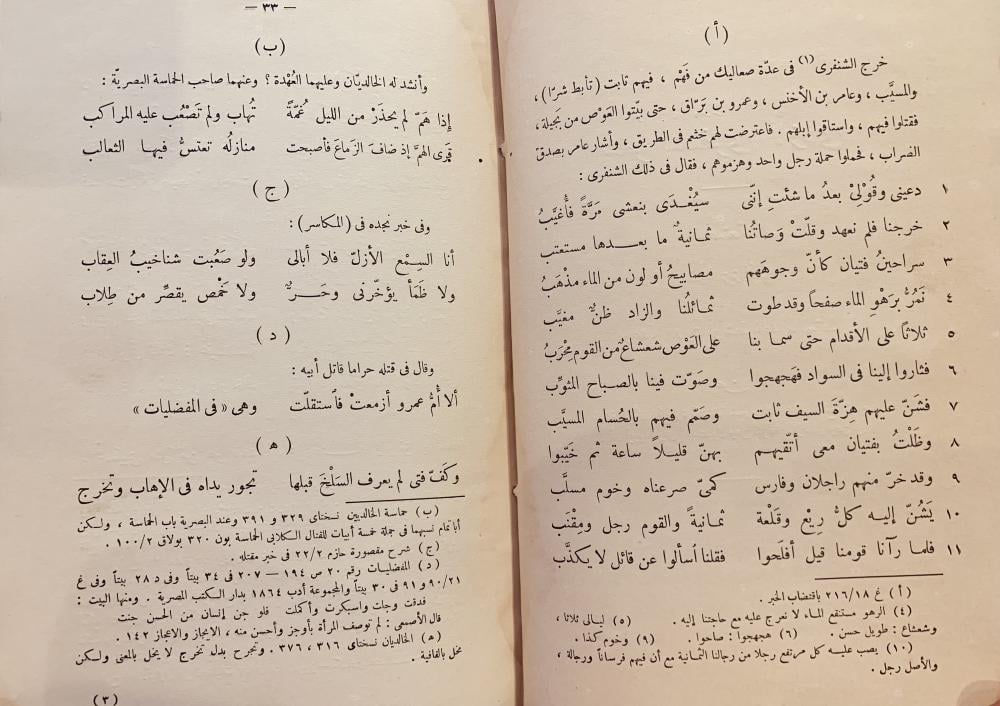 (أ)
خرج الشنفرى (١) فى عدّة صعاليك من فَهْم ، فيهم ثابت (تأبط شرّا) ،
والمسيَّب ، وعامر بن الأخنس ، وعمرو بن بَرّاق ، حتى بيّتوا العَوْص من بَجيلة ،
فقتلوا فيهم ، واستاقوا إبلهم . فاعترضت لهم خثم فى الطريق ، وأشار عامر بصدق
الضراب ، فحملوا حملة رجل واحد وهزموهم ، فقال فى ذلك الشنفرى :
١ دعينى وقُوْلِىْ بعدُ ما شئتِ إنّنى سيُغْدَى بنعشى مَرَّةً فأُغَيَّبُ
٢ خرجنا فلم نعهد وقلّتْ وَصاتُنا ثمـانيةٌ ما بعـــدها مستعتب
٣ سراحينُ فتيان كأنّ وجوهَهم مصابيحُ أو لون من الماء مذْهَبُ
٤ نَمُرُّ برَهْوِ الماء صفحاً وقد طوت ثمـائلُنا والزاد ظنٌّ مغيَّب
٥ ثلاثًا على الأقدام حتى سمـا بنا على العَوْص شعشاعٌ من القوم مِحْرَبُ
٦ فثاروا إلينا فى السواد فهَجهجوا وصَوّت فينا بالصباح المثوِّب
٧ فشَنّ عليهم هِزّةَ السيف ثابت وصَمّم فيهم بالحُسام المسيَّب
٨ وظَلْتُ بفتيان معى أتّقيهـم بهنّ قليـلاً ساعة ثم خَيّبوا
٩ وقد خرّ منهم راجلان وفارس كمىّ صرعناه وخوم مسلَّب
١٠ يَشُنّ إليـه كلُّ رِيْع وقَلْعة ثمـانيةً والقوم رجل ومِقْنَب
١١ فلما رآنا قومنا قيل أفلَحوا فقلنا ٱسألوا عن قائل لا يكذَّب
(أ) غ ٢١٦/١٨ باقتضاب الخبر .
(٤) الرهو مستنقع المـاء لا نعرج عليه مع حاجتنا إليه . (٥) ليـالى ثلاثا ،
وشعشاع : طويل حسن . (٦) هجهجوا : صاحوا . (٩) وخوم كذا .
(١٠) يصب عليـه كل مرتفع رجلا من رجالنا الثمـانية مع أن فيهم فرسانًا ورجالة ،
والأصل رجل .
— ٣٣ —
(ب)
وأنشد له الخالديّان وعليهما العُهْدة ؟ وعنهما صاحب الحماسة البصريّة :
إذا هَمّ لم يحذَرْ من الليل غُمّةً تُهاب ولم تَصْعُب عليه المراكب
قَرَى الهمَّ إذ ضافَ الزَماعَ فأصبحت منازلُه تعتسُّ فيهـا الثعالب
(ج)
وفى خبر نجده فى (المكاسر) :
أنا السِمْع الأزلّ فلا أبالى ولو صَعُبت شناخيبُ العِقاب
ولا ظَمَأ يؤخّرنى وحَـــرٌّ ولا خَمْص يقصِّر من طِلاب
(د)
وقال فى قتله حراما قاتل أبيه :
ألا أُمُّ عمرو أزمعتْ فٱستقلّت وهى «فى المفضليات»
(ھ)
وكَفّ فتى لم يعرف السَلْخَ قبلها تجور يداه فى الإهاب وتخرج
(ب) حماسة الخالديين نسختاى ٣٢٩ و ٣٩١ وعند البصرية باب الحماسة ، ولـكن
أبا تمام نسبهما فى جملة خمسة أبيات للقتال الكلابى الحماسة بون ٣٢٠ بولاق ١٠٠/٢ .
(ج) شرح مقصورة حازم ٢٢/٢ فى خبر مقتله .
(د) المفضليات رقم ٢٠ ص ١٩٤ — ٢٠٧ فى ٣٤ بيتاً وفى د ٢٨ بيتاً وفى غ
٩٠/٢١ و ٩١ فى ٣٠ بيتاً والمجموعة أدب ١٨٦٤ بدار الكتب المصرية . ومنها البيت :
فدقت وجلت واسبكرت وأكملت فلو جن إنسان من الحسن جنت
قال الأصمعى : لم توصف المرأة بأوجز وأحسن منه ، الايجاز والاعجاز ١٤٢ .
(ھ) الخالديان نسختاى ٣١٦ ، ٣٧٦ . وتجرح بدل تخرج لا يخل بالمعنى ولـكن
يخل بالقافية .
(٣)